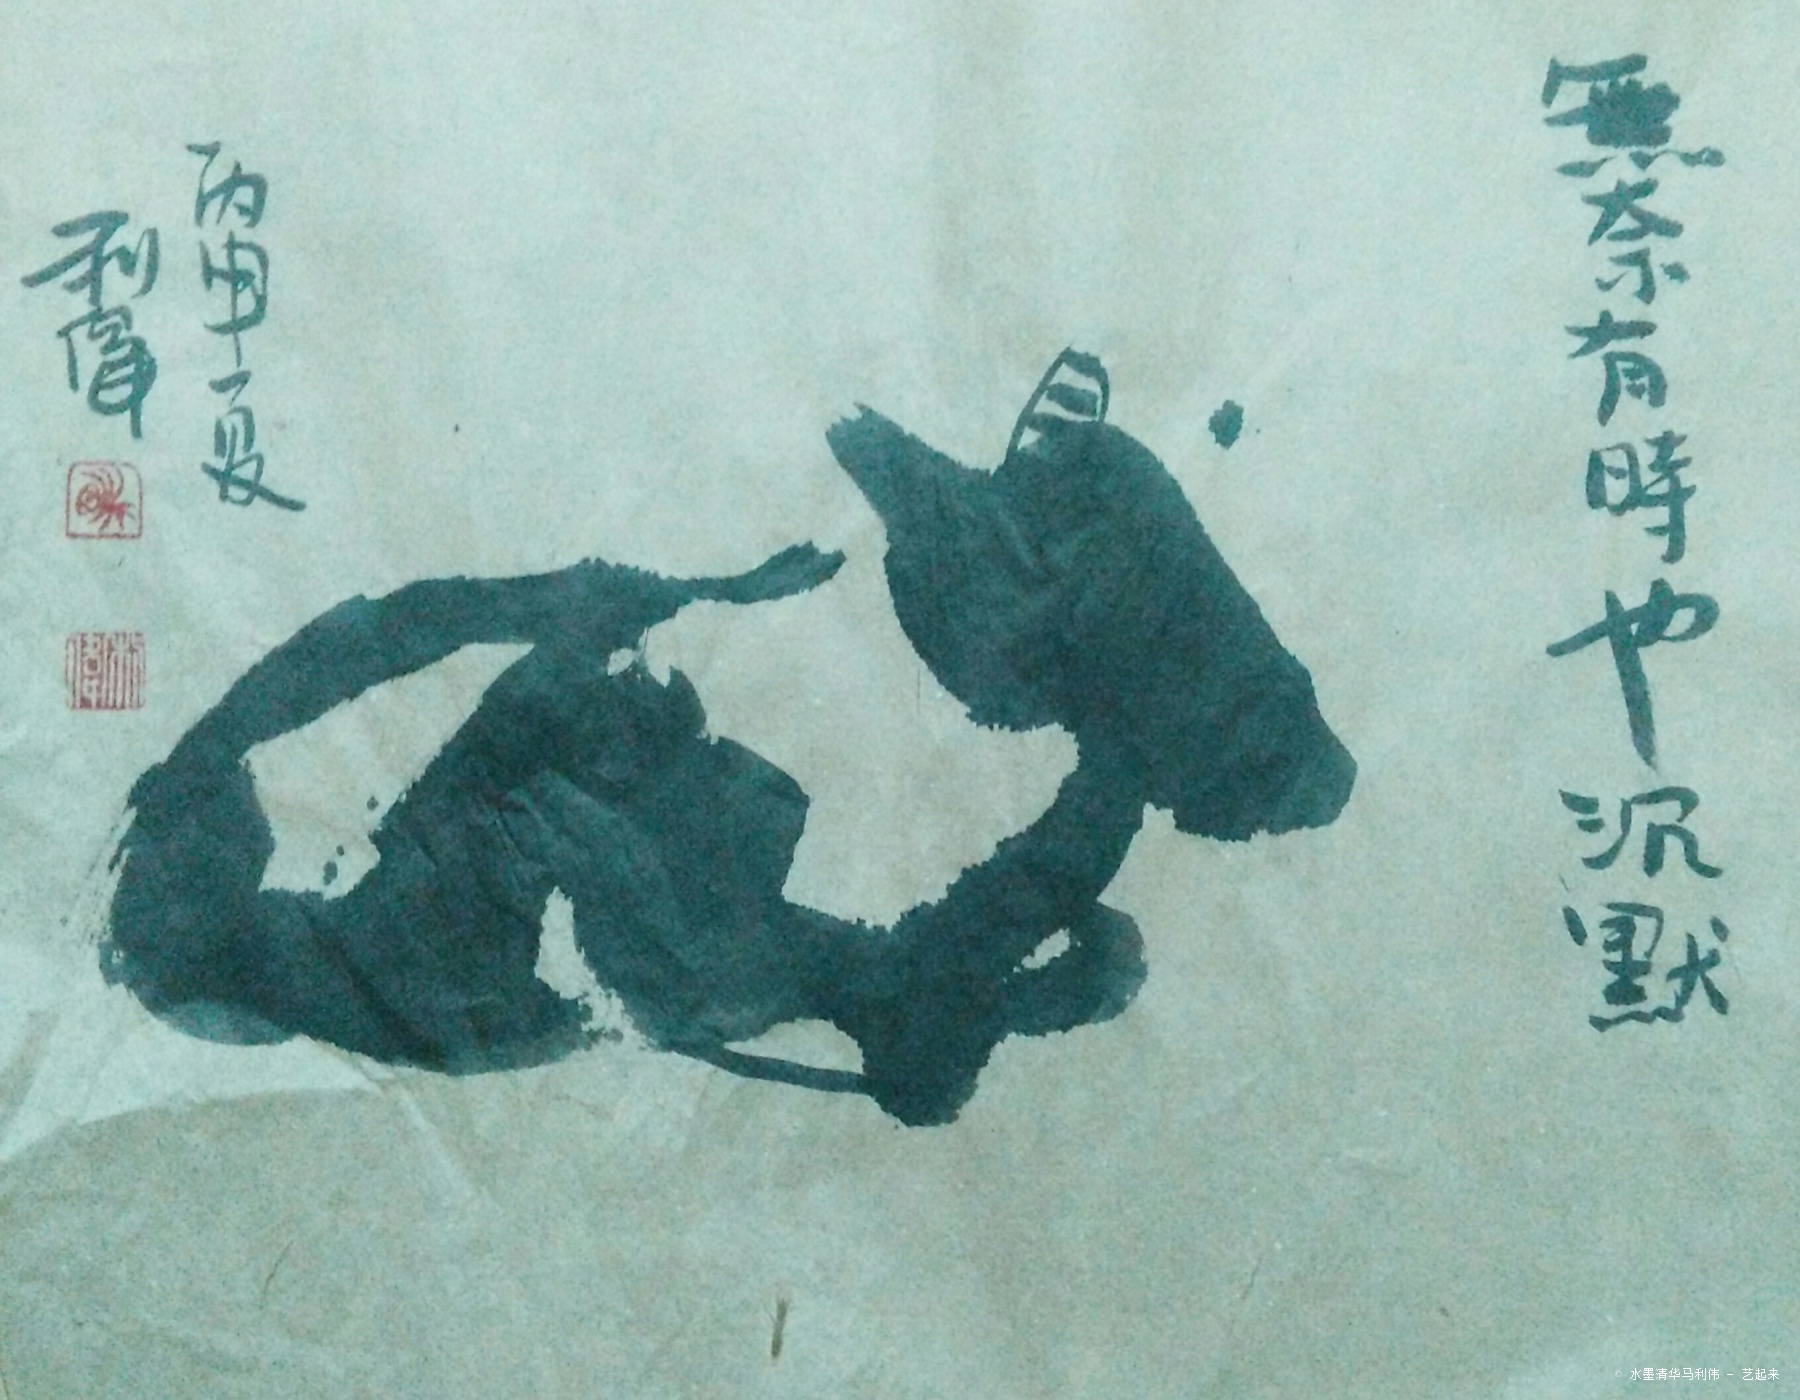 無奈有時也沉默
丙申夏
利偉
© 水墨清华马利伟 - 艺起来